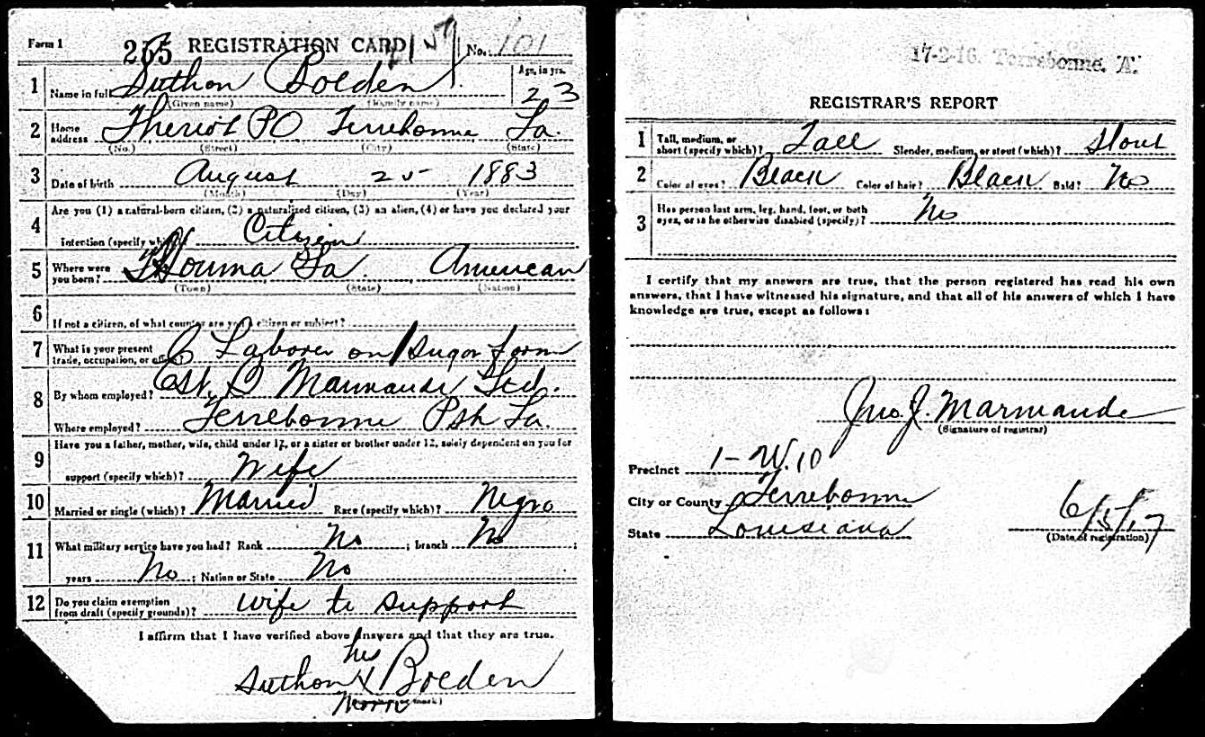 Form 1 255 REGISTRATION CARD No. 101
1 Name in full Suthon Bolden Age, in yrs. 23
(Given name) (Family name)
2 Home address Theriot PO Terrebonne La.
(No.) (Street) (City) (State)
3 Date of birth August 25 1883
(Month) (Day) (Year)
4 Are you (1) a natural-born citizen, (2) a naturalized citizen, (3) an alien, (4) or have you declared your
intention (specify which)? Citizen
5 Where were you born? Houma La. American
(Town) (State) (Nation)
6 If not a citizen, of what country are you a citizen or subject?
7 What is your present trade, occupation, or office? Laborer on sugar farm
8 By whom employed? Est. B Marmande Ltd.
Where employed? Terrebonne Psh La.
9 Have you a father, mother, wife, child under 12, or a sister or brother under 12, solely dependent on you for
support (specify which)? Wife
10 Married or single (which)? Married Race (specify which)? Negro
11 What military service have you had? Rank No ; branch No ;
years No ; Nation or State No
12 Do you claim exemption from draft (specify grounds)? Wife to support
I affirm that I have verified above answers and that they are true.
his
Suthon X Bolden
(Signature or mark)
17-2-16. Terrebonne, A.
REGISTRAR'S REPORT
1 Tall, medium, or short (specify which)? Tall Slender, medium, or stout (which)? Stout
2 Color of eyes? Black Color of hair? Black Bald? No
3 Has person lost arm, leg, hand, foot, or both eyes, or is he otherwise disabled (specify)? No
I certify that my answers are true, that the person registered has read his own
answers, that I have witnessed his signature, and that all of his answers of which I have
knowledge are true, except as follows:
Jno. J. Marmande
(Signature of registrar)
Precinct 1 - W. 10
City or County Terrebonne
State Louisiana
6/5/17
(Date of registration)